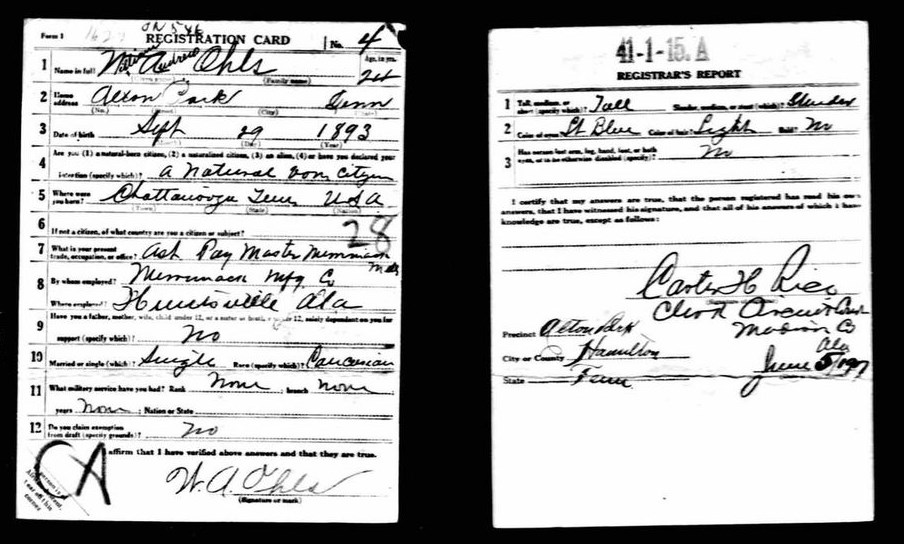 Form 1
REGISTRATION CARD No. 4
1 Name in full Andrew Ohls Age, in yrs.
(Family name) 24
2 Home address Alton Park Tenn
(No.) (Street) (City) (State)
3 Date of birth Sept 29 1893
(Month) (Day) (Year)
4 Are you (1) a natural-born citizen, (2) a naturalized citizen, (3) an alien, (4) or have you declared your
intention (specify which)? a Natural born Citizen
5 Where were you born? Chattanooga Tenn USA
(Town) (State) (Nation)
6 If not a citizen, of what country are you a citizen or subject?
28
7 What is your present trade, occupation, or office? Ast Pay Master Merrimack Mills
8 By whom employed? Merrimack Mfg Co
Where employed? Huntsville Ala
9 Have you a father, mother, wife, child under 12, or a sister or brother under 12, solely dependent on you for
support (specify which)? No
10 Married or single (which)? Single Race (specify which)? Caucasian
11 What military service have you had? Rank None ; branch None
years None ; Nation or State
12 Do you claim exemption from draft (specify grounds)? No
I affirm that I have verified above answers and that they are true.
W. A. Ohls
(Signature or mark)
41-1-15. A
REGISTRAR'S REPORT
1 Tall, medium, or short (specify which)? Tall Slender, medium, or stout (which)? Slender
2 Color of eyes? Lt Blue Color of hair? Light Bald? No
3 Has person lost arm, leg, hand, foot, or both
eyes, or is he otherwise disabled (specify)? No
I certify that my answers are true, that the person registered has read his own
answers, that I have witnessed his signature, and that all of his answers of which I have
knowledge are true, except as follows:
Carter H Rice
Clerk Circuit Court
Precinct Alton Park Madison Co
Ala
City or County Hamilton
June 5/1917
State Tenn